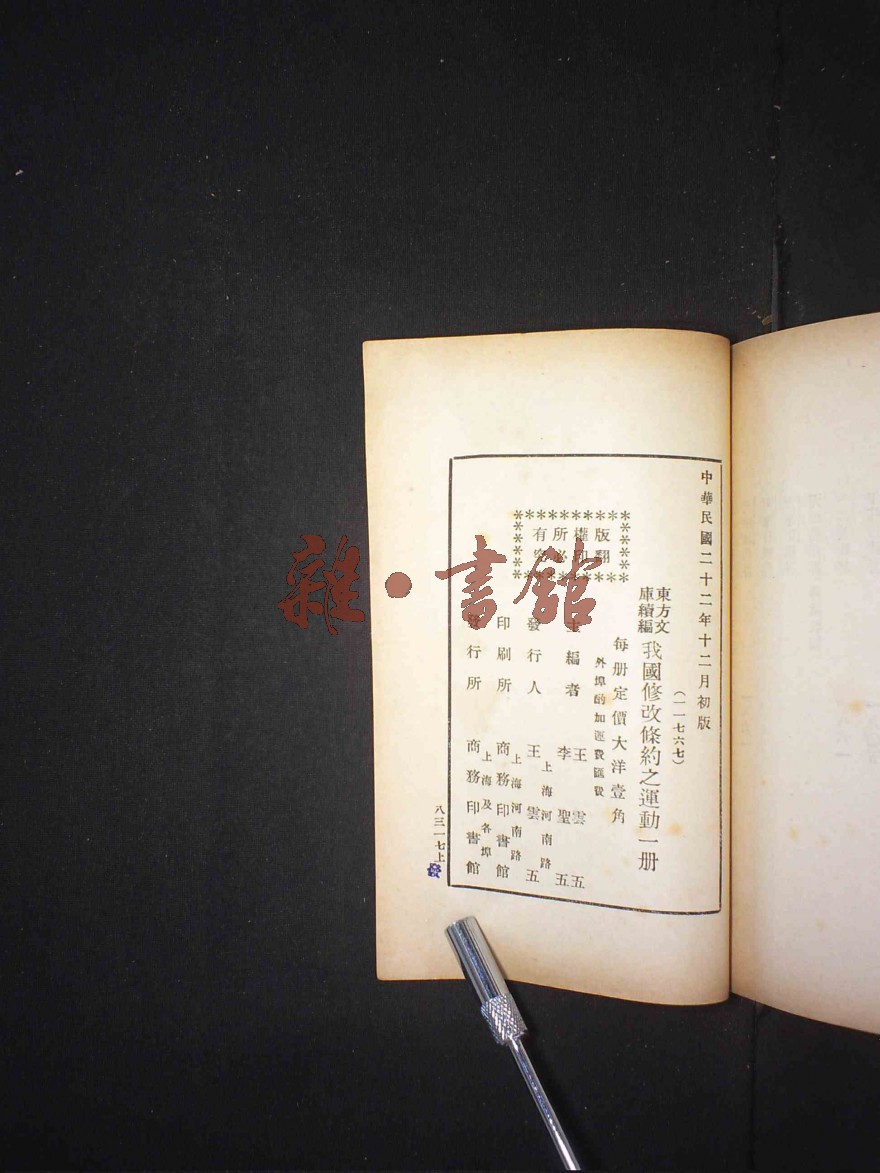 中華民國二十二年十二月初版
(一一七六七)
東方文
庫續編
我國修改條約之運動一册
每册定價大洋壹角
外埠酌加運費匯費
版權所有
翻印必究
主編者
王雲五
李聖五
發行人
上海河南路
王雲五
印刷所
上海河南路
商務印書館
發行所
上海及各埠
商務印書館
八三一七上
雜·書館